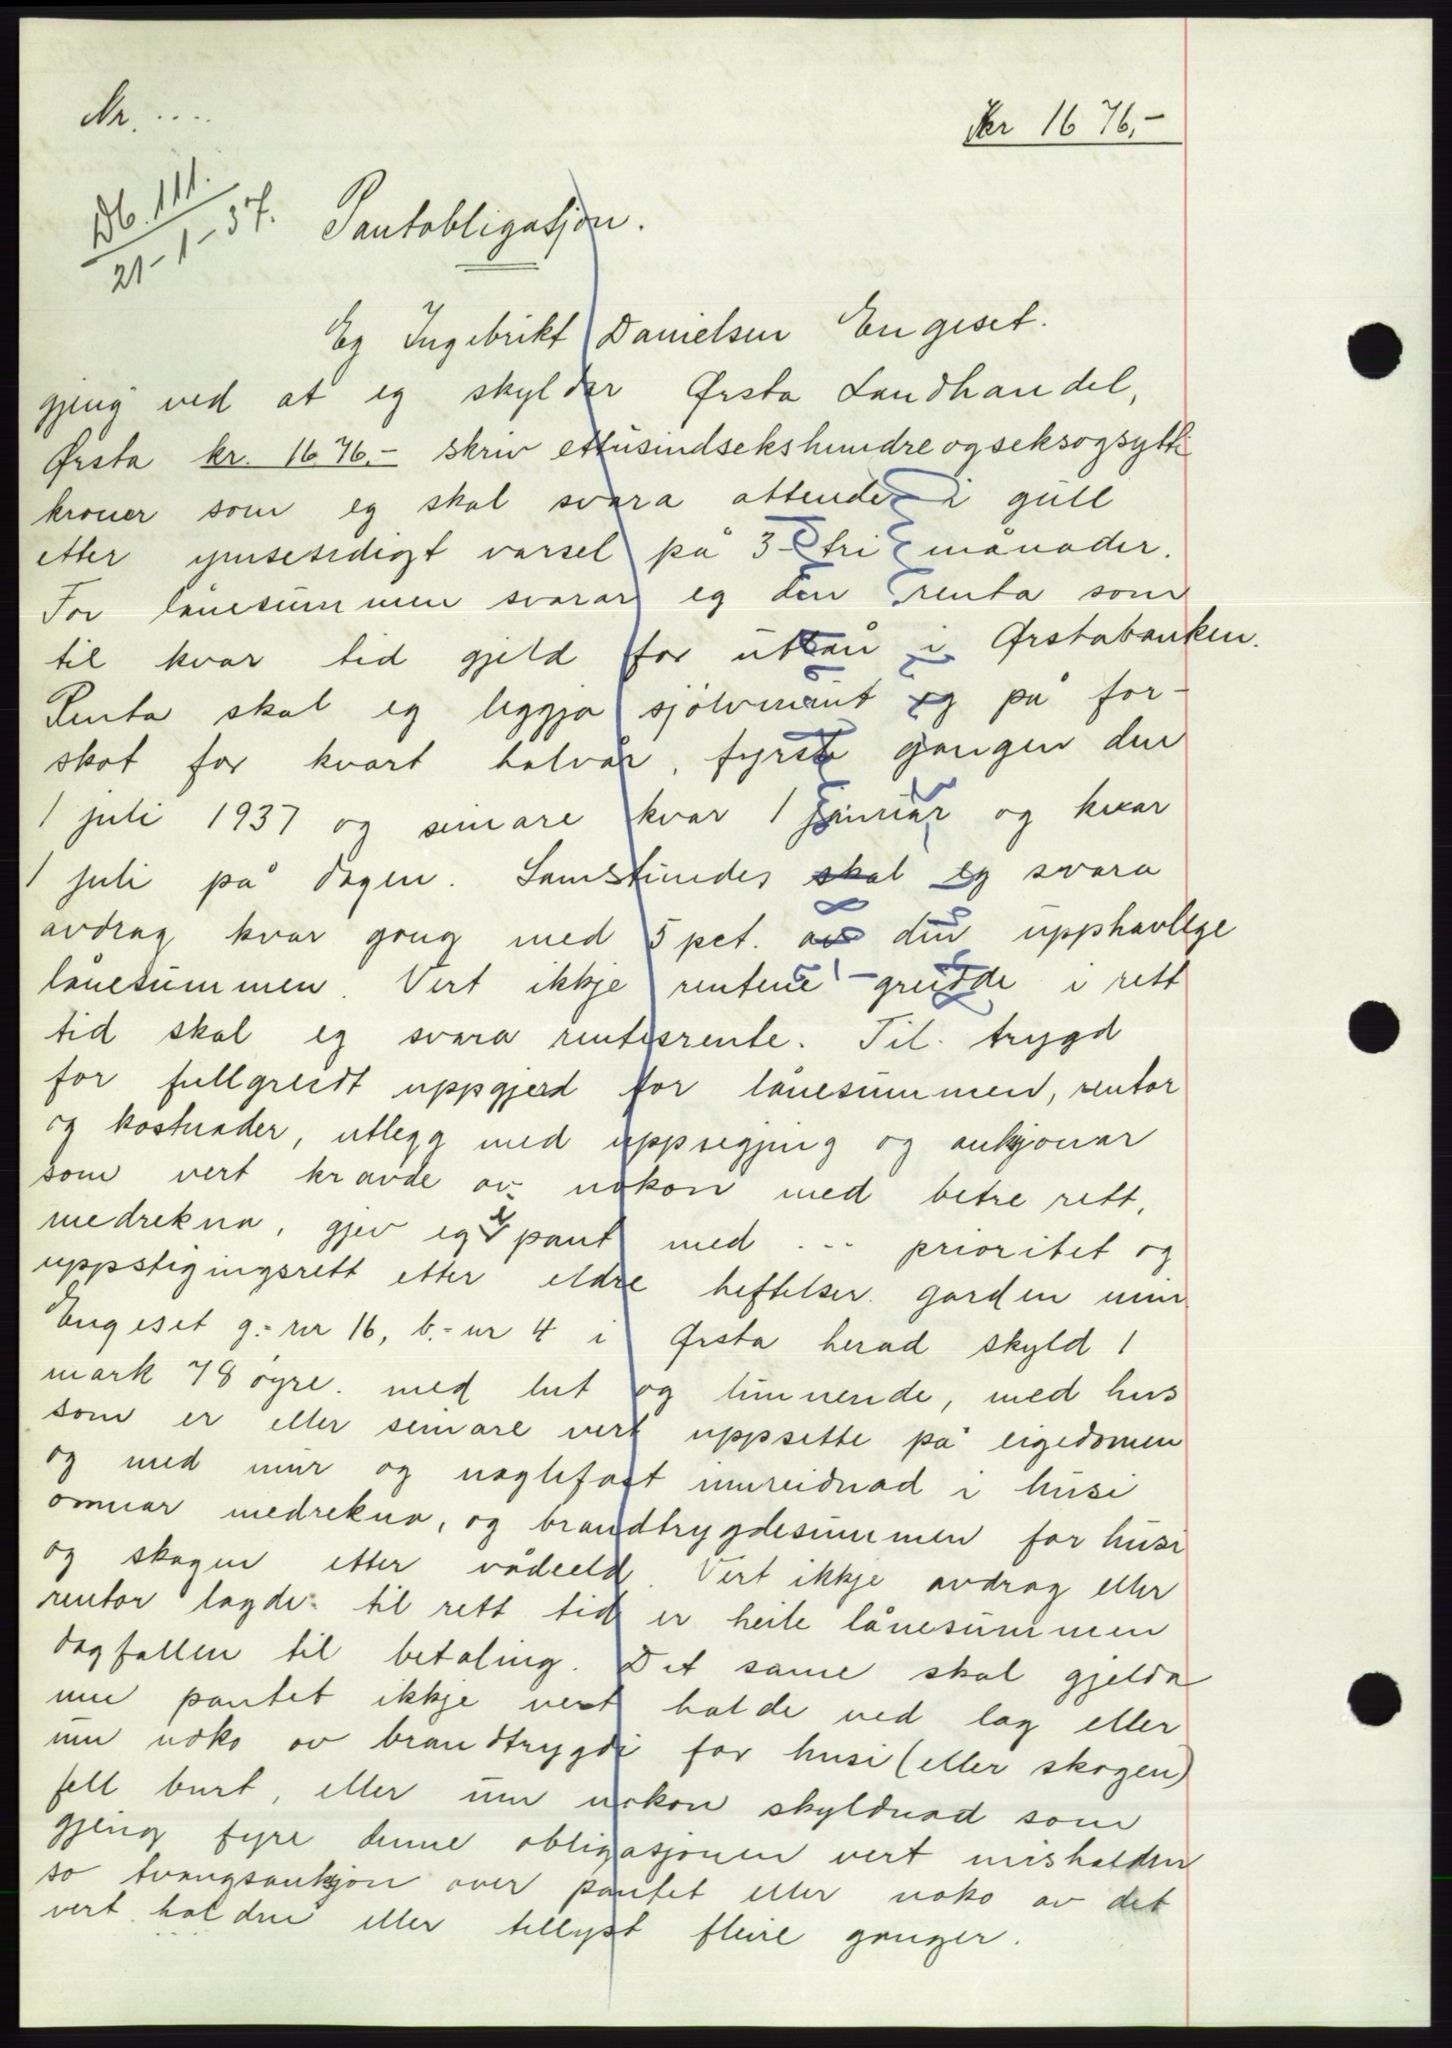 Nr. ....
Kr 1676,-
Db. 111.
21-1-37.
Pantobligasjon.
Eg Ingebrikt Danielsen Engeset.
gjeng ved at eg skyldar Ørsta Landhandel,
Ørsta kr. 1676.- skriv ettusindsekshundreogseksogsytti
kroner som eg skal svara attende i gull
etter ymsesidigt varsel på 3 - tri månader.
For lånesummen svarar eg den renta som
til kvar tid gjeld for utlån i Ørstabanken.
Renta skal eg leggja sjølvmint og på for-
skot for kvart halvår, fyrste gongen den
1 juli 1937 og seinare kvar 1 januar og kvar
1 juli på dagen. Samstundes skal eg svara
avdrag kvar gong med 5 pct. av den upphavlege
lånesummen. Vert ikkje rentene greidde i rett
tid skal eg svara rentesrente. Til trygd
for fullgreidt uppgjerd for lånesummen, rentor
og kostnader, utlegg med uppsegjing og aukjonar
som vert kravde av nokon med betre rett,
medrekna, gjev eg i pant med ... prioritet og
uppstigingsrett etter eldre heftelser garden min
Engeset g.-nr 16, b.-nr 4 i Ørsta herad skyld 1
mark 78 øyre. med lut og lunnende, med hus
som er eller seinare vert uppsette på eigedomen
og med mur og naglefast innreidnad i husi
omnar medrekna, og brandtrygdesummen for husi
og skogen etter vådeeld. Vert ikkje avdrag eller
rentor lagde til rett tid er heile lånesummen
dagfallen til betaling. Det same skal gjelda
um pantet ikkje vert halde ved lag eller
um noko av brandtrygdi for husi (eller skogen)
fell burt, eller um nokon skyldnad som
gjeng fyre denne obligasjonen vert mishalden
so tvangsaukjon over pantet eller noko av det
vert halden eller tillyst fleire gonger.